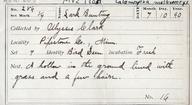 No. 284 Name Calamospiza melanocorys Month Day Year
Set Mark 1/4 Lark Bunting 7 10 90
Collected by Alyssis Clark
Locality Pipestone Co., Minn
Set 4 Identity Bird Seen Incubation Fresh
Nest, A hollow in the ground lined with
grass and a few hairs.
No. 14